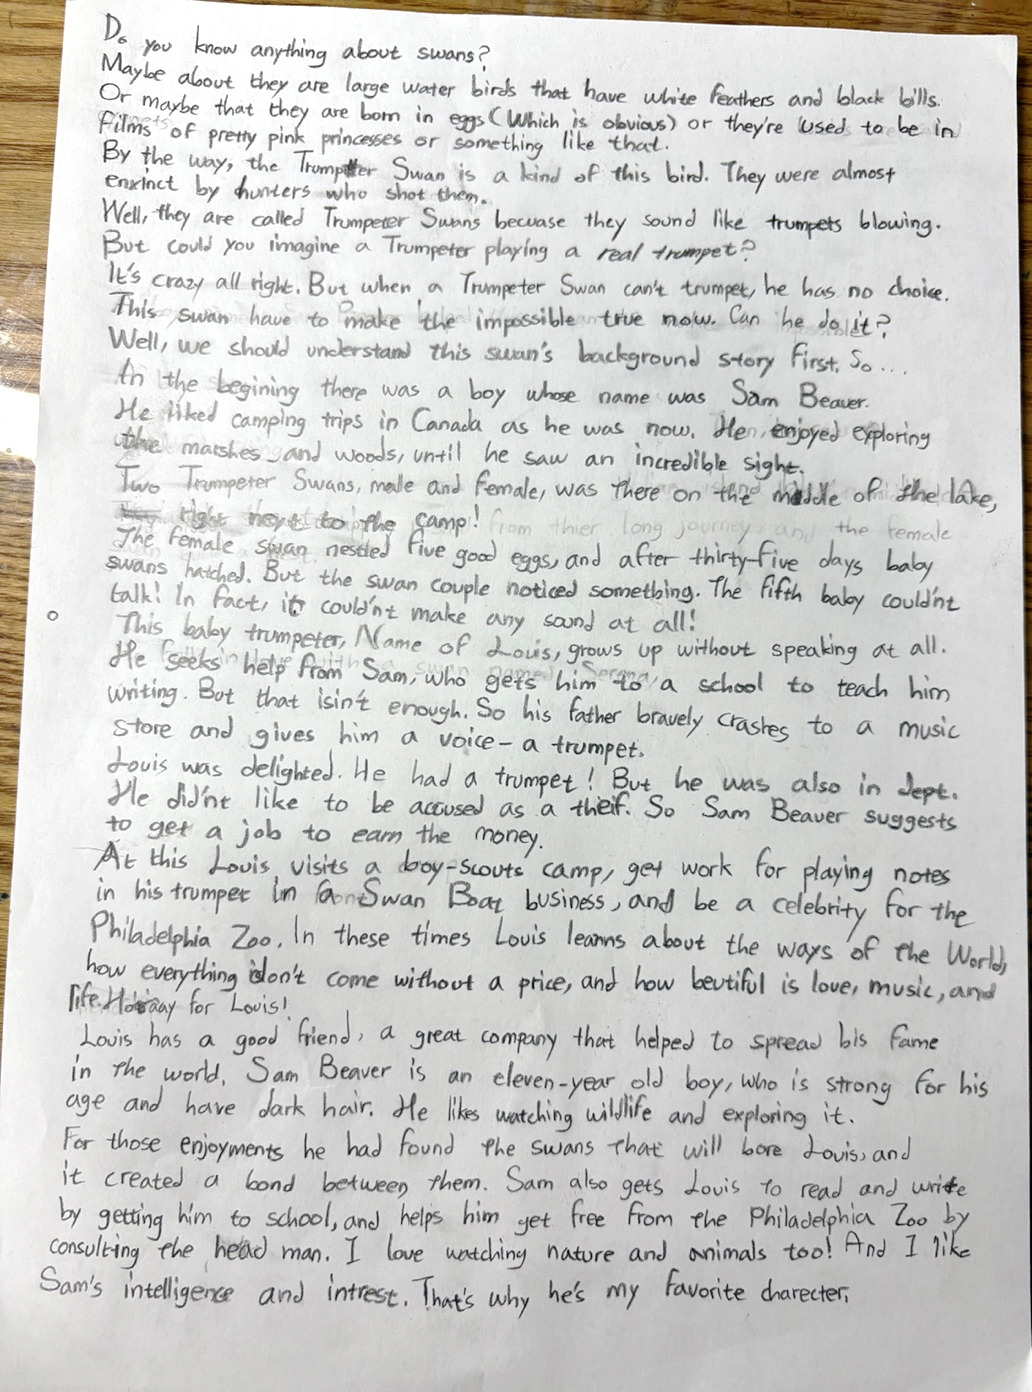 Do you know anything about swans?
Maybe about they are large water birds that have white feathers and black bills.
Or maybe that they are born in eggs (Which is obvious) or they're used to be in
films of pretty pink princesses or something like that.
By the way, the Trumpeter Swan is a kind of this bird. They were almost
enxinct by hunters who shot them.
Well, they are called Trumpeter Swans becuase they sound like trumpets blowing.
But could you imagine a Trumpeter playing a real trumpet?
It's crazy all right. But when a Trumpeter Swan can't trumpet, he has no choice.
This swan have to make the impossible true now. Can he do it?
Well, we should understand this swan's background story first. So...
In the begining there was a boy whose name was Sam Beaver.
He liked camping trips in Canada as he was now. He enjoyed exploring
the marshes and woods, until he saw an incredible sight.
Two Trumpeter Swans, male and female, was there on the middle of the lake,
right next to the camp! from thier long journey and the female
The female swan nestled five good eggs, and after thirty-five days baby
swans hatched. But the swan couple noticed something. The fifth baby could'nt
talk! In fact, it could'nt make any sound at all!
This baby trumpeter, Name of Louis, grows up without speaking at all.
He seeks help from Sam, who gets him to a school to teach him
writing. But that isin't enough. So his father bravely crashes to a music
store and gives him a voice - a trumpet.
Louis was delighted. He had a trumpet! But he was also in dept.
He did'nt like to be accused as a theif. So Sam Beaver suggests
to get a job to earn the money.
At this Louis visits a boy-scouts camp, get work for playing notes
in his trumpet in a Swan Boat business, and be a celebrity for the
Philadelphia Zoo. In these times Louis learns about the ways of the World,
how everything don't come without a price, and how beutiful is love, music, and
life. Hooray for Louis!
Louis has a good friend, a great company that helped to spread his fame
in the world. Sam Beaver is an eleven-year old boy, who is strong for his
age and have dark hair. He likes watching wildlife and exploring it.
For those enjoyments he had found the swans that will bore Louis, and
it created a bond between them. Sam also gets Louis to read and write
by getting him to school, and helps him get free from the Philadelphia Zoo by
consulting the head man. I love watching nature and animals too! And I like
Sam's intelligence and intrest. That's why he's my favorite charecter.